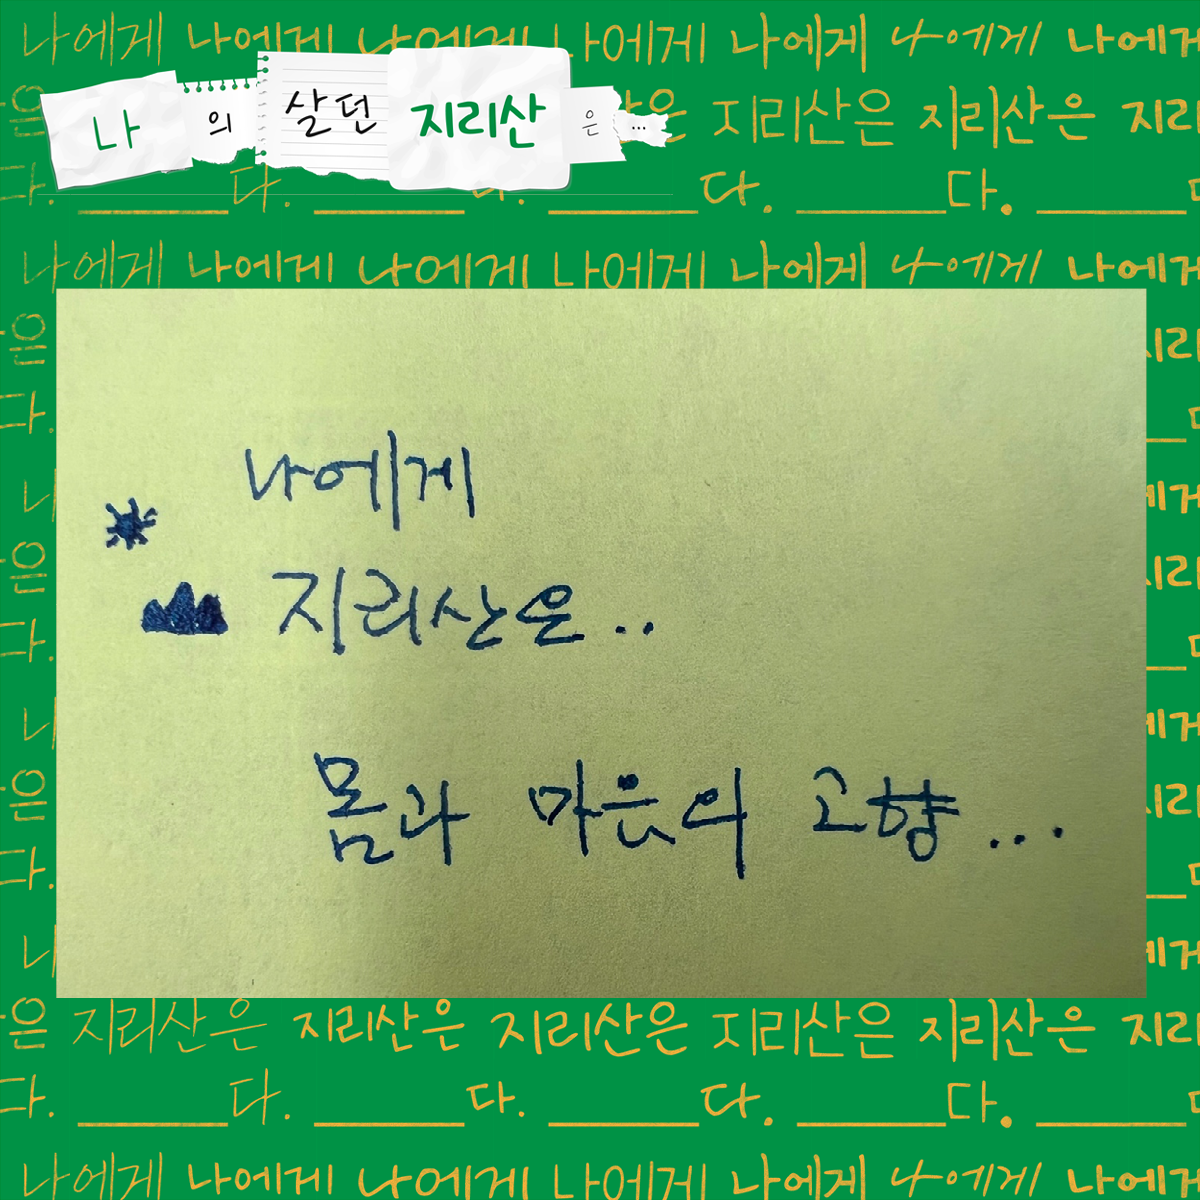 나에게 나에게 나에게 나에게 나에게 나에게 나에게
나의 살던 지리산은...
은 지리산은 지리산은 지리
다. ______다. ______다. ______다. ______다. ______
나에게 나에게 나에게 나에게 나에게 나에게 나에게
나에게
지리산은..
몸과 마음의 고향...
은 지리산은 지리산은 지리산은 지리산은 지리산은 지리
다. ______다. ______다. ______다. ______다. ______
나에게 나에게 나에게 나에게 나에게 나에게 나에게